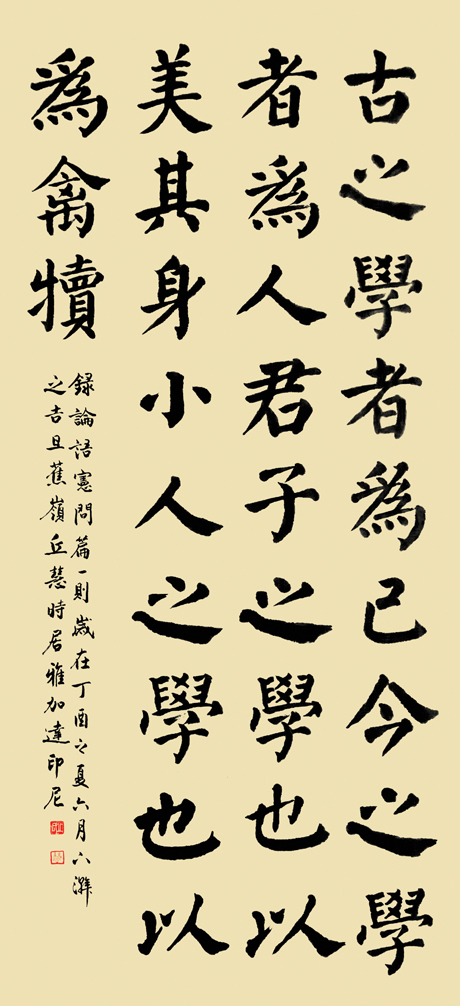 古之學者爲己今之學
者爲人君子之學也以
美其身小人之學也以
爲禽犢
録論語憲問篇一則歲在丁酉之夏六月澣
之吉旦蕉嶺丘慧時居雅加達印尼